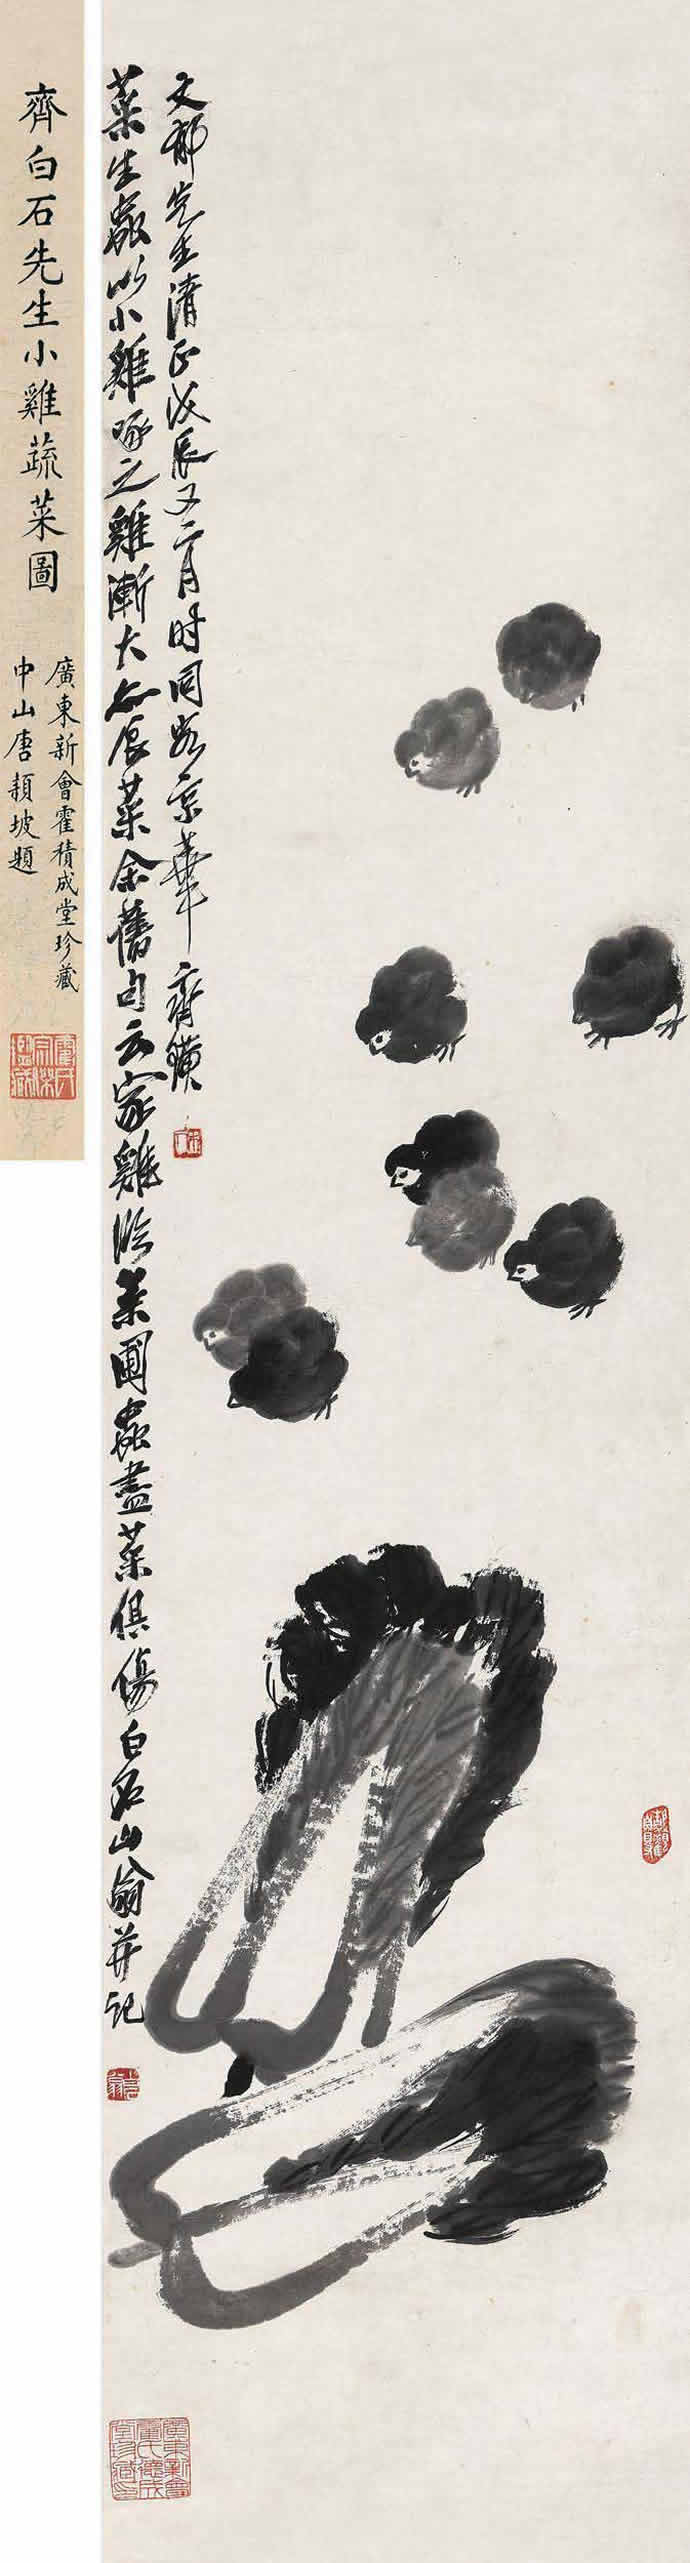 文郁先生清正戊辰又二月时同客京華 齊璜
菜生蟲以小雞啄之雞漸大食菜余舊句云家雞菜圃蟲盡菜俱傷白石山翁并記
齊白石先生小雞蔬菜圖
廣東新會霍積成堂珍藏
中山唐頡坡題